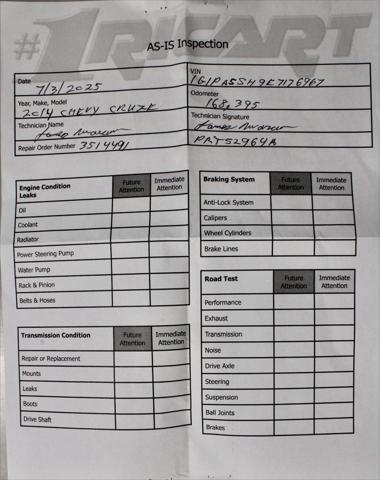 #1RICART
AS-IS Inspection
Date 7/3/2025
VIN 1G1PA5SH9E7176967
Year, Make, Model 2014 CHEVY CRUZE
Odometer 168,395
Technician Name
Technician Signature
Repair Order Number 3514491
PRT52964A
Engine Condition Leaks Future Attention Immediate Attention
Oil
Coolant
Radiator
Power Steering Pump
Water Pump
Rack & Pinion
Belts & Hoses
Transmission Condition Future Attention Immediate Attention
Repair or Replacement
Mounts
Leaks
Boots
Drive Shaft
Braking System Future Attention Immediate Attention
Anti-Lock System
Calipers
Wheel Cylinders
Brake Lines
Road Test Future Attention Immediate Attention
Performance
Exhaust
Transmission
Noise
Drive Axle
Steering
Suspension
Ball Joints
Brakes